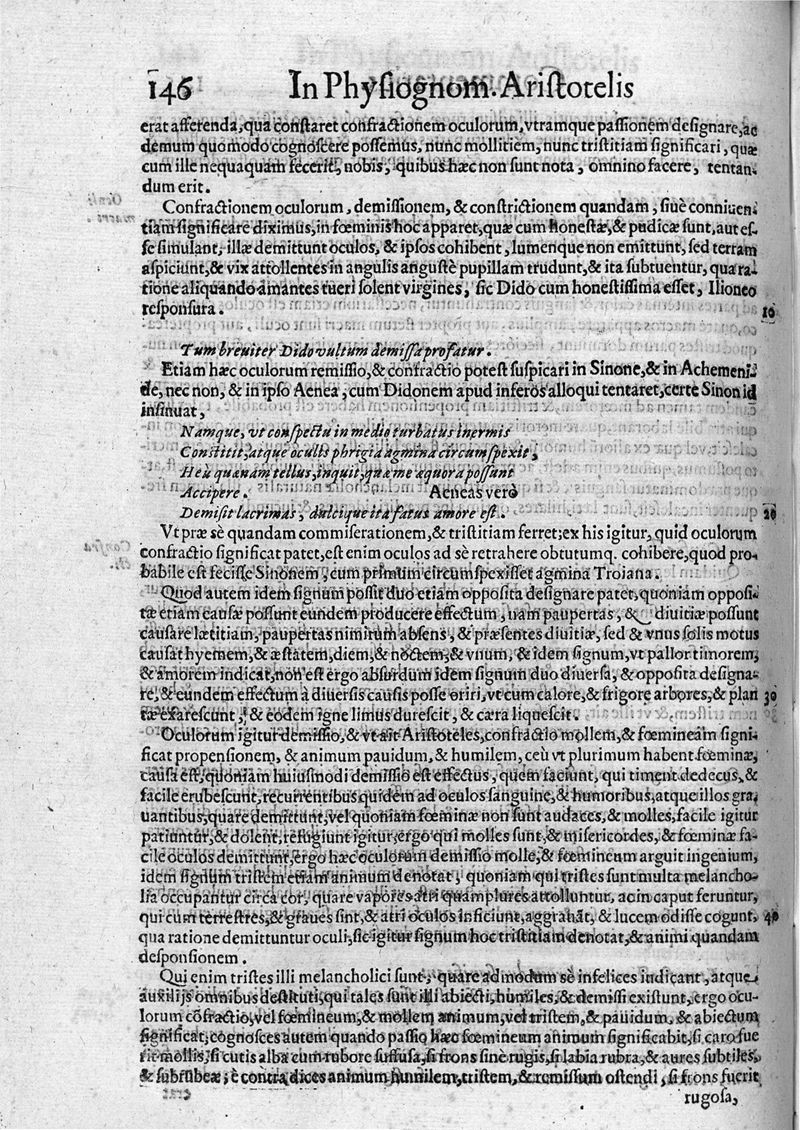 146 In Physiognom. Aristotelis
erat afferenda, qua constaret confractionem oculorum, vtramque passionem designare, ac
demum quomodo cognoscere possemus, nunc mollitiem, nunc tristitiam significari, quæ
cum ille nequaquam fecerit, nobis, quibus hæc non sunt nota, omnino facere, tentan-
dum erit.
Confractionem oculorum, demissionem, & constrictionem quandam, siuè conniuen-
tiam significare diximus, in fœminis hoc apparet, quæ cum honestæ, & pudicæ sunt, aut es-
se simulant, illæ demittunt oculos, & ipsos cohibent, lumenque non emittunt, sed terram
aspiciunt, & vix attollentes in angulis angustè pupillam trudunt, & ita subtuentur, qua ra-
tione aliquando amantes tueri solent virgines, sic Dido cum honestissima esset, Ilioneo
responsura. 10
Tum breuiter Dido vultum demissa profatur.
Etiam hæc oculorum remissio, & confractio potest suspicari in Sinone, & in Achemeni-
de, nec non, & in ipso Aenea, cum Didonem apud inferos alloqui tentaret, certè Sinon id
insinuat,
Namque, vt conspectu in medio turbatus inermis
Constitit, atque oculis phrigia agmina circumspexit,
Heù quænam tellus, inquit, quæ me æquora possunt
Accipere. Aeneas verò
Demisit lacrimas, dulcique ita fatus amore est. 20
Vt præ sè quandam commiserationem, & tristitiam ferret; ex his igitur, quid oculorum
confractio significat patet, est enim oculos ad sè retrahere obtutumq. cohibere, quod pro-
babile est fecisse Sinonem, cum primum circumspexisset agmina Troiana.
Quod autem idem signum possit duo etiam opposita designare patet, quoniam opposi-
tæ etiam causæ possunt eundem producere effectum, nam paupertas, & diuitiæ possunt
causare lætitiam, paupertas nimirum absens, & præsentes diuitiæ, sed & vnus solis motus
causat hyemem, & æstatem, diem, & noctem, & vnum, & idem signum, vt pallor timorem,
& amorem indicat, non est ergo absurdum idem signum duo diuersa, & opposita designa-
re, & eundem effectum à diuersis causis posse oriri, vt cum calore, & frigore arbores, & plan 30
tæ exarescunt, & eodem igne limus durescit, & cæra liquescit.
Oculorum igitur demissio, & vt ait Aristoteles, confractio mollem, & fœmineam signi-
ficat propensionem, & animum pauidum, & humilem, ceù vt plurimum habent fœminæ,
causa est, quoniam huiusmodi demissio est effectus, quem faciunt, qui timent dedecus, &
facile erubescunt, recurrentibus quidem ad oculos sanguine, & humoribus, atque illos gra
uantibus, quare demittunt, vel quoniam fœminæ non sunt audaces, & molles, facile igitur
patiuntur, & dolent, refugiunt igitur, ergo qui molles sunt, & misericordes, & fœminæ fa-
cile oculos demittunt, ergo hæc oculorum demissio molle, & fœmineum arguit ingenium,
idem signum tristem etiam animum denotat, quoniam qui tristes sunt multa melancho-
lia occupantur circa cor, quare vapores atri quam plures attolluntur, ac in caput feruntur,
qui cum terrestres, & graues sint, & atri oculos inficiunt, aggrauāt, & lucem odisse cogunt, 40
qua ratione demittuntur oculi, sic igitur signum hoc tristitiam denotat, & animi quandam
desponsionem.
Qui enim tristes illi melancholici sunt, quare admodum sè infelices indicant, atque
auxilijs omnibus destituti, qui tales sunt illi abiecti, humiles, & demissi existunt, ergo ocu-
lorum cōfractio, vel fœmineum, & mollem animum, vel tristem, & pauidum, & abiectum
significat, cognosces autem quando passio hæc fœmineum animum significabit, si caro fue
rit mollis, si cutis alba cum rubore suffusa, si frons sine rugis, si labia rubra, & aures subtiles,
& subrubeæ; è contra dices animum humilem, tristem, & remissum ostendi, si frons fuerit
rugosa,